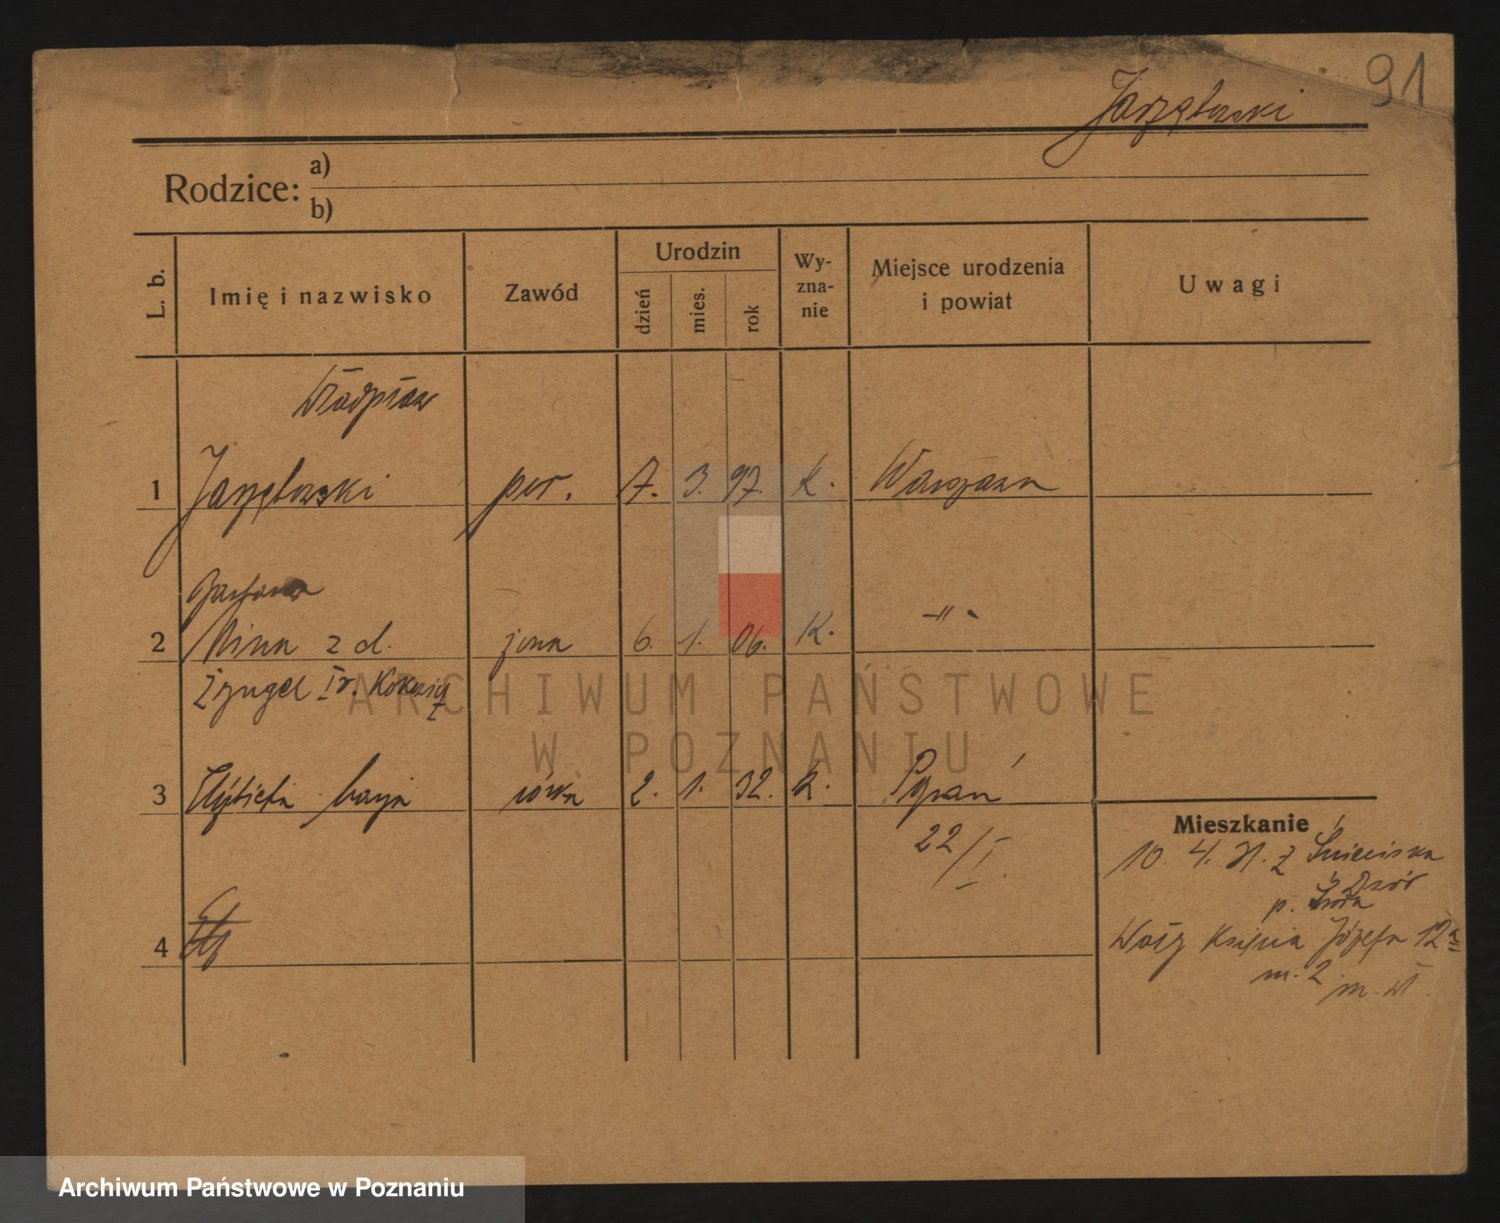 91
Jarzębowski
Rodzice:
a)
b)
L. b.
Imię i nazwisko
Zawód
Urodzin
dzień
mies.
rok
Wy-
zna-
nie
Miejsce urodzenia
i powiat
Uwagi
Władysław
1 Jarzębowski por. 7. 3. 97. k. Warszawa
Barbara
2 Nina z d. żona 6. 1. 06. K. -"-
3 Elżbieta Marja córka 2. 1. 32. k. Poznań
22/I.
4
Mieszkanie
10. 4. 31. z Śnieciska
Dwór
p. Środa
Wały Księcia Józefa 12a
m. 2
ARCHIWUM PAŃSTWOWE
W POZNANIU
Archiwum Państwowe w Poznaniu